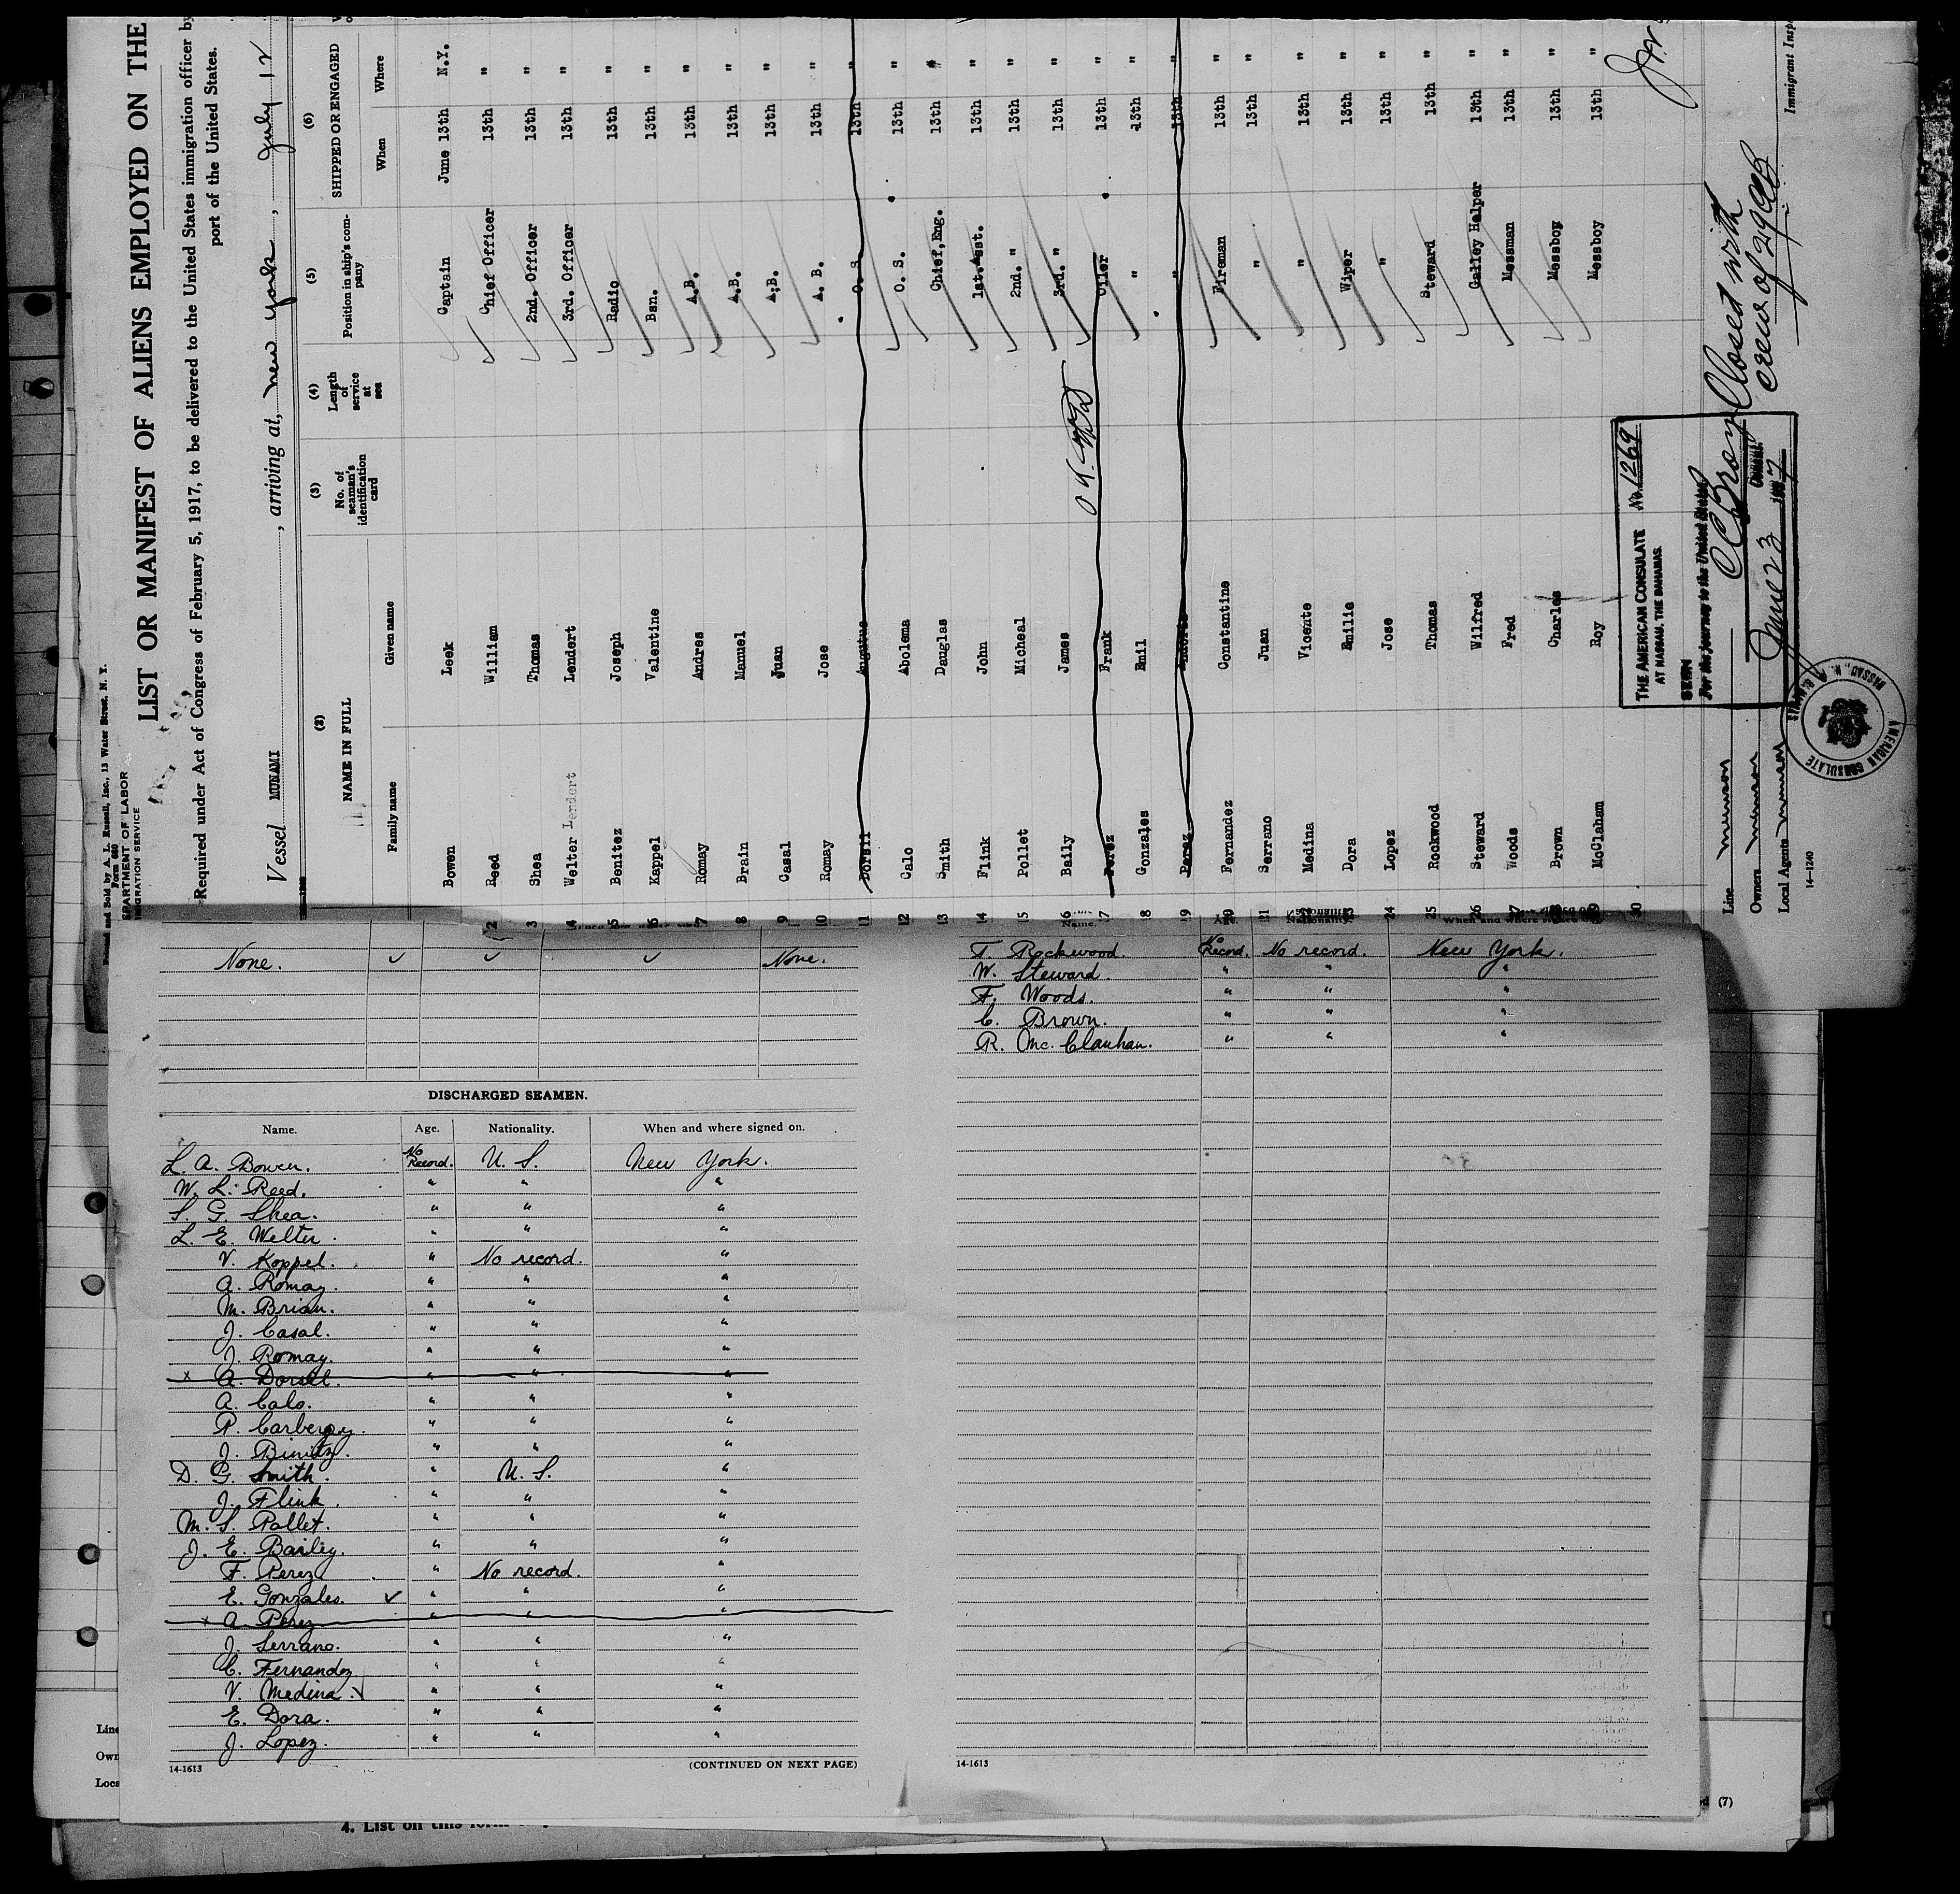 Printed and Sold by A. L. Russell, Inc., 13 Water Street, N. Y.
Form 680
DEPARTMENT OF LABOR
IMMIGRATION SERVICE
LIST OR MANIFEST OF ALIENS EMPLOYED ON THE
Required under Act of Congress of February 5, 1917, to be delivered to the United States immigration officer by
port of the United States.
Vessel MUNAMI, arriving at, New York, July 12
(2) (3) (4) (5) (6)
NAME IN FULL No. of seaman's identification card Length of service at sea Position in ship's company SHIPPED OR ENGAGED
Family name Given name When Where
Bowen Leek Captain June 13th N.Y.
2 Reed William Chief Officer 13th "
3 Shea Thomas 2nd. Officer 13th "
4 Welter Lendert Lendert 3rd. Officer 13th "
5 Benitez Joseph Radio 13th "
6 Kappel Valentine Bsn. 13th "
7 Romay Andres A.B. 13th "
8 Brain Manuel A.B. 13th "
9 Casal Juan A.B. 13th "
10 Romay Jose A. B. 13th "
11 Dorsil Augutus O. S. 13th "
12 Calo Abolema O. S. 13th "
13 Smith Dauglas Chief,Eng. 13th "
14 Flink John 1st. Asst. 13th "
15 Pollet Micheal 2nd. " 13th "
16 Baily James 3rd. " 13th "
17 Perez Frank Oiler 13th "
18 Gonzales Emil " 13th "
19 Perez " 13th "
20 Fernandez Constantine Fireman 13th "
Serrano Juan " 13th "
Medina Vicente " 13th "
Dora Emilie Wiper 13th "
24 Lopez Jose " 13th "
25 Rockwood Thomas Steward 13th "
26 Steward Wilfred Galley Helper 13th "
Woods Fred Messman 13th "
Brown Charles Messboy 13th "
McClaham Roy Messboy 13th "
30
THE AMERICAN CONSULATE No. 1269
AT NASSAU, THE BAHAMAS.
SEEN
For the journey to the United States
Consul
June 23 1927
Closed with
crew of 29
AMERICAN CONSULATE
NASSAU, N. P.
Line
Owners
Local Agents
Immigrant Insp
14-1240
None. None.
DISCHARGED SEAMEN.
Name. Age. Nationality. When and where signed on.
L. A. Bowen. No Record. U. S. New York.
W. L. Reed. " " "
S. G. Shea. " " "
L. E. Welter. " " "
V. Koppel. " No record. "
A. Romay. " " "
M. Brian. " " "
J. Casal. " " "
J. Romay. " " "
x A. Dorsil. " " "
A. Calo. " " "
P. Carberry. " " "
J. Binitz. " " "
D. G. Smith. " U. S. "
J. Flink. " " "
M. S. Pollet. " " "
J. E. Bailey. " " "
F. Perez. " No record. "
E. Gonzales. " " "
x A. Perez " " "
J. Serrano. " " "
C. Fernandez " " "
V. Medina. " " "
E. Dora. " " "
J. Lopez. " " "
14-1613 (CONTINUED ON NEXT PAGE)
Name.
T. Rockwood. No Record. No record. New York.
W. Steward. " " "
F. Woods. " " "
C. Brown. " " "
R. Mc. Clanhan. " " "
14-1613
Line
Own
Loca
(7)
4. List on this form